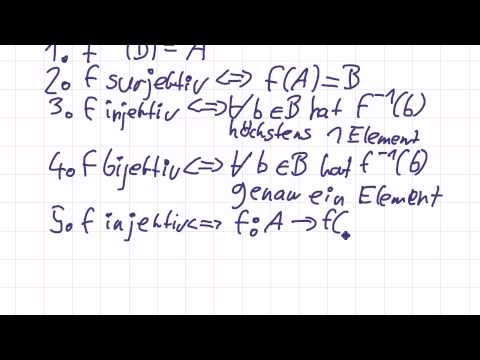 1. f (B) = A
2. f surjektiv <=> f(A) = B
3. f injektiv <=> ∀ b ∈ B hat f⁻¹(b)
höchstens 1 Element
4. f bijektiv <=> ∀ b ∈ B hat f⁻¹(b)
genau ein Element
5. f injektiv <=> f: A → f(